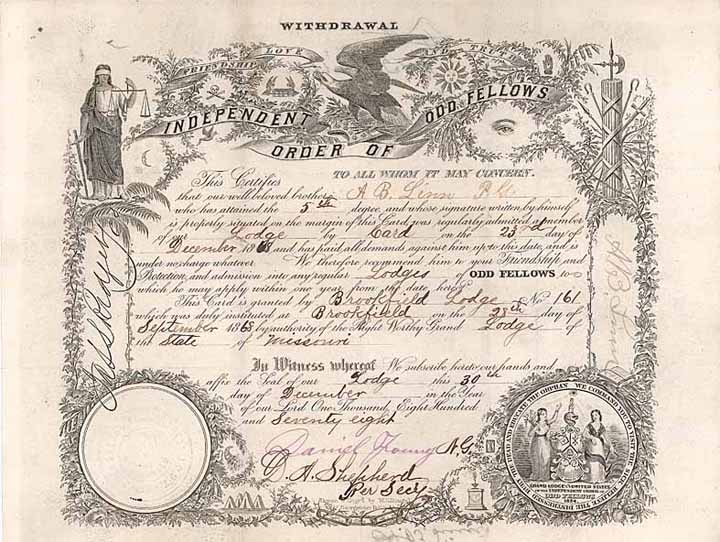 WITHDRAWAL
FRIENDSHIP LOVE AND TRUTH
INDEPENDENT ORDER OF ODD FELLOWS
TO ALL WHOM IT MAY CONCERN.
This Certifies
that our well-beloved brother A. B. Linn
who has attained the 5th degree, and whose signature written by himself
is properly situated on the margin of this Card was regularly admitted a member
of Lodge by Card on the 23rd day of
December 1868 and has paid all demands against him up to this date, and is
under no charge whatever. We therefore recommend him to your Friendship and
Protection, and admission into any regular Lodges of ODD FELLOWS to
which he may apply within one year from the date hereof
This Card is granted by Brookfield Lodge No 161
which was duly instituted at Brookfield on the 28th day of
September 1868 by authority of the Right Worthy Grand Lodge of
the State of Missouri
In Witness whereof We subscribe hereto our hands and
affix the Seal of our Lodge this 30th
day of December in the Year
of our Lord One Thousand, Eight Hundred
and Seventy eight
Daniel Young N.G.
D. A. Shepherd
Per Secy
A B Linn
WE COMMAND YOU TO VISIT THE SICK, RELIEVE THE DISTRESSED, BURY THE DEAD AND EDUCATE THE ORPHAN
GRAND LODGE OF THE UNITED STATES
OF THE INDEPENDENT ORDER OF
ODD FELLOWS